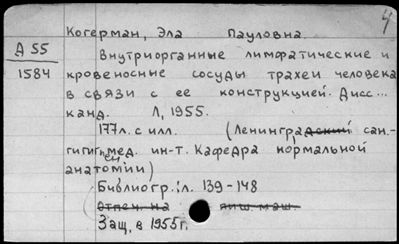 4
Когерман, Эла Пауловна
Д 55
1584
Внутриорганные лимфатические и
кровеносные сосуды трахеи человека
в связи с ее конструкцией. Дисс...
канд. Л, 1955.
177л. с илл. (Ленинградский сан.-
гигиен. мед. ин-т. Кафедра нормальной
анатомии)
(Библиогр.: л. 139-148
Отпеч. на пиш. маш.
Защ. в 1955г.